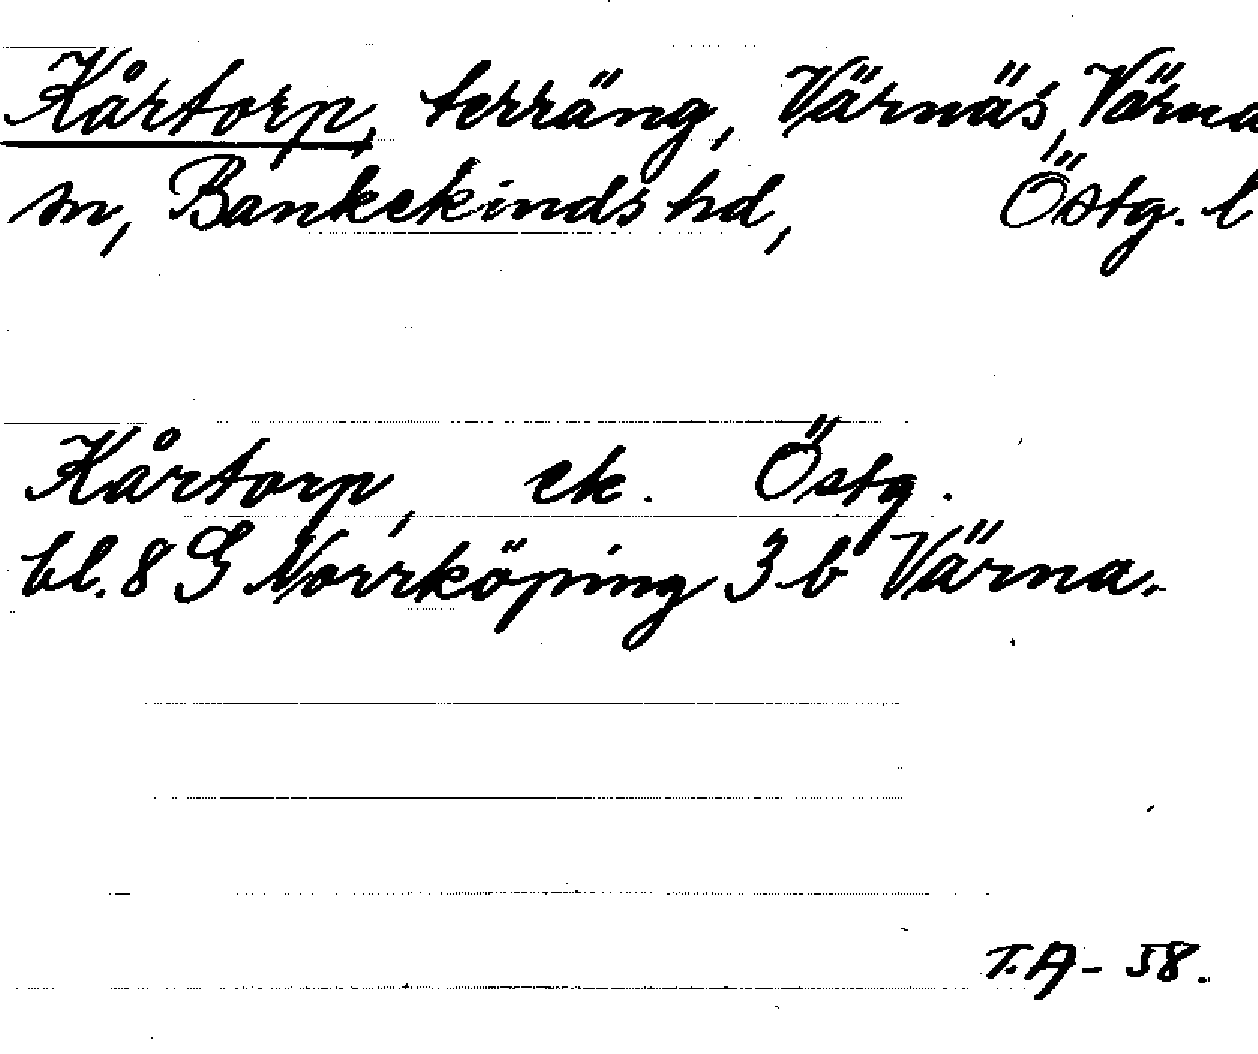 Kårtorp, terräng, Värnäs, Värna
sn, Bankekinds hd, Östg. l
Kårtorp, ek. Östg.
bl. 8 G Norrköping 3 b Värna.
T.A - 58.